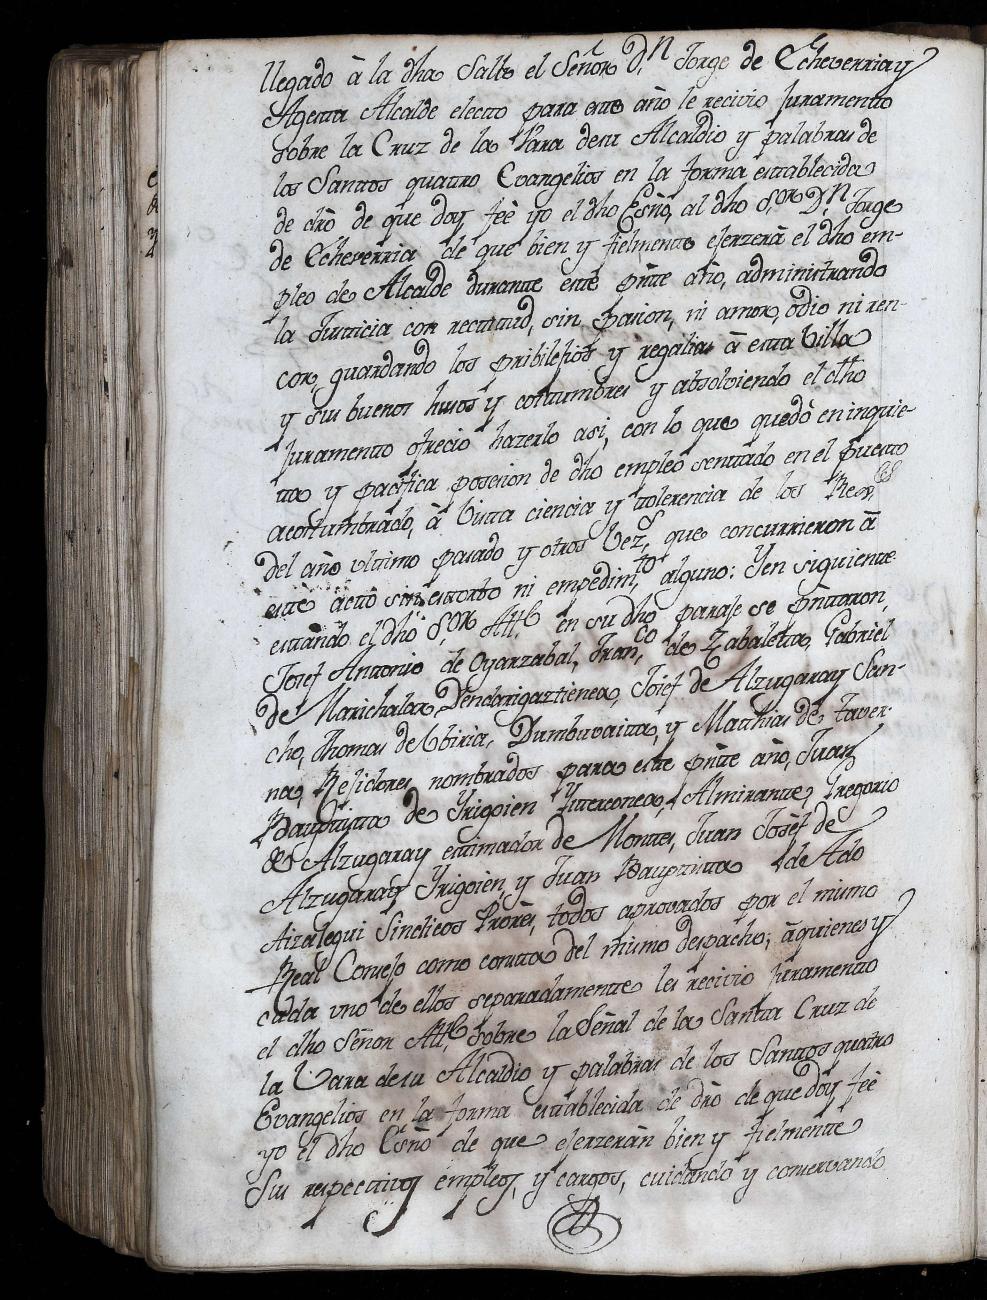 llegado à la dha Salla el Señor D.n Jorge de Echeverria y
Agerra Alcalde electo para este año le recivio Juramento
sobre la Cruz de la Vara desu Alcaldio y palabras de
los Santos quatro Evangelios en la forma establecida
de dró de que doy feè yo el dho Esño, al dho S.or D.n Jorge
de Echeverria de que bien y fielmente ejerzerà el dho em-
pleo de Alcalde durante este pñte año, administrando
la Justicia con rectitud, sin pasion, ni amor, odio ni ren-
cor, guardando los pribilejios y regalias à esta Villa
y sus buenos husos y costumbres y absolviendo el dho
Juramento ofrecio hazerlo asi, con lo que quedò en inquie-
ta y pacifica posesion de dho empleo sentado en el puesto
acostumbrado, à vista ciencia y tolerencia de los Rex.es
del año ultimo pasado y otros Vez.s que concurrieron à
este acto sin estorbo ni empedim.to alguno: Y en siguiente
estando el dho S.or Alt.e en su dho paraje se pñtaron,
Josef Antonio de Oyarzabal, Fran.co de Zabaleta, Gabriel
de Marichalar Dendarigaztienea, Josef de Alzugaray San-
cho, Thomas de Ubiria, Dambuvaita, y Matthias de Taver-
na, Rejidores nombrados para este pñte año, Juan
Bauptista de Yrigoien Yttverconea, Almirante, Gregorio
de Alzugaray estimador de Montes, Juan Josef de
Alzugaray Yrigoien, y Juan Bauptista de Ado
Aizalegui Sindicos Prores, todos aprovados por el mismo
Real Consejo como consta del mismo despacho; à quienes y
cada uno de ellos separadamente les recivio juramento
el dho Señor Alt.e sobre la Señal de la Santa Cruz de
la Vara desu Alcaldio y palabras de los Santos quatro
Evangelios en la forma establecida de dró de que doy feè
yo el dho Esño de que ejerzeràn bien y fielmente
Sus respectivos empleos, y cargos, cuidando y conservando